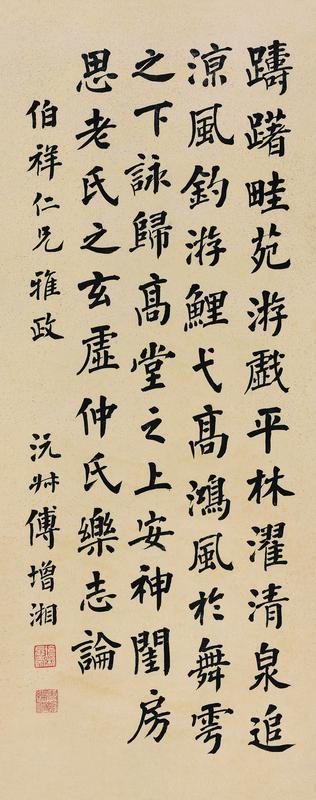 躊躇畦苑游戲平林濯清泉追
涼風釣游鯉弋髙鴻風於舞雩
之下詠歸髙堂之上安神閨房
思老氏之玄虛仲氏樂志論
伯祥仁兄雅政
沅叔傅增湘